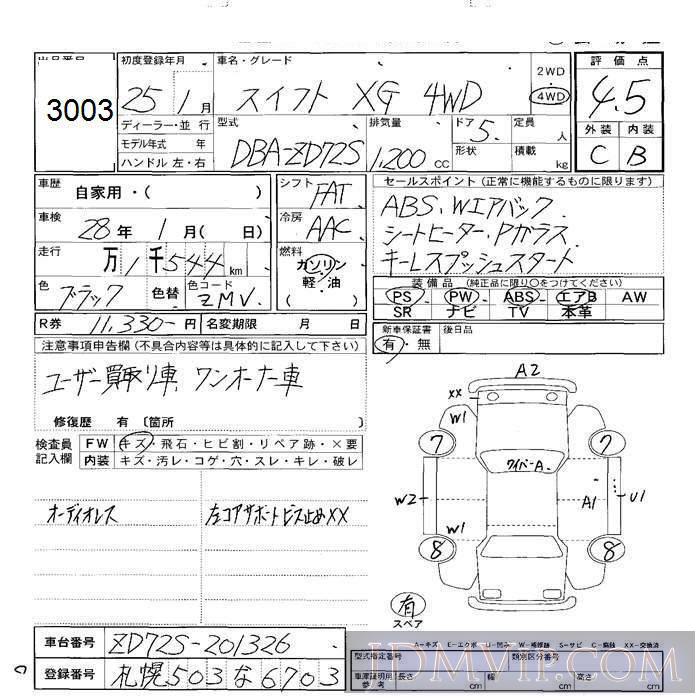 3003
初度登録年月 25年1月
車名・グレード スイフト XG 4WD
2WD
4WD
評価点
4.5
外装 内装
C B
ディーラー・並行
モデル年式 年
ハンドル 左・右
型式 DBA-ZD72S
排気量 1,200 cc
ドア 5
形状
定員 人
積載 kg
車歴 自家用・( )
車検 28年 1月( 日)
走行 万 1千544 km
色 ブラック 色替 色コード ZMV
シフト FAT
冷房 AAC
燃料 ガソリン
軽・油
セールスポイント(正常に機能するものに限ります)
ABS、Wエアバック、
シートヒーター、Pガラス
キーレスプッシュスタート
装備品(純正品に限り○をつけてください)
PS PW ABS エアB AW
SR ナビ TV 本革
R券 11,330-円 名変期限 月 日
新車保証書 後日品
有・無
注意事項申告欄(不具合内容等は具体的に記入して下さい)
ユーザー買取り車、ワンオーナー車
修復歴 有〔箇所
検査員
記入欄
FW キズ・飛石・ヒビ割・リペア跡・×要
内装 キズ・汚レ・コゲ・穴・スレ・キレ・破レ
オーディオレス
左コアサポートビス止めXX
A2
XX
W1
7
7
ワイパーA
W2
A1
U1
W1
8
8
有
スペア
A-キズ E-エクボ U-凹み W-補修跡 S-サビ C-腐蝕 XX-交換済
車台番号 ZD72S-201326
登録番号 札幌503な6703
型式指定番号 類別区分番号
車庫証明用
参考
長さ cm 幅 cm 高さ cm
JDMVIP.COM